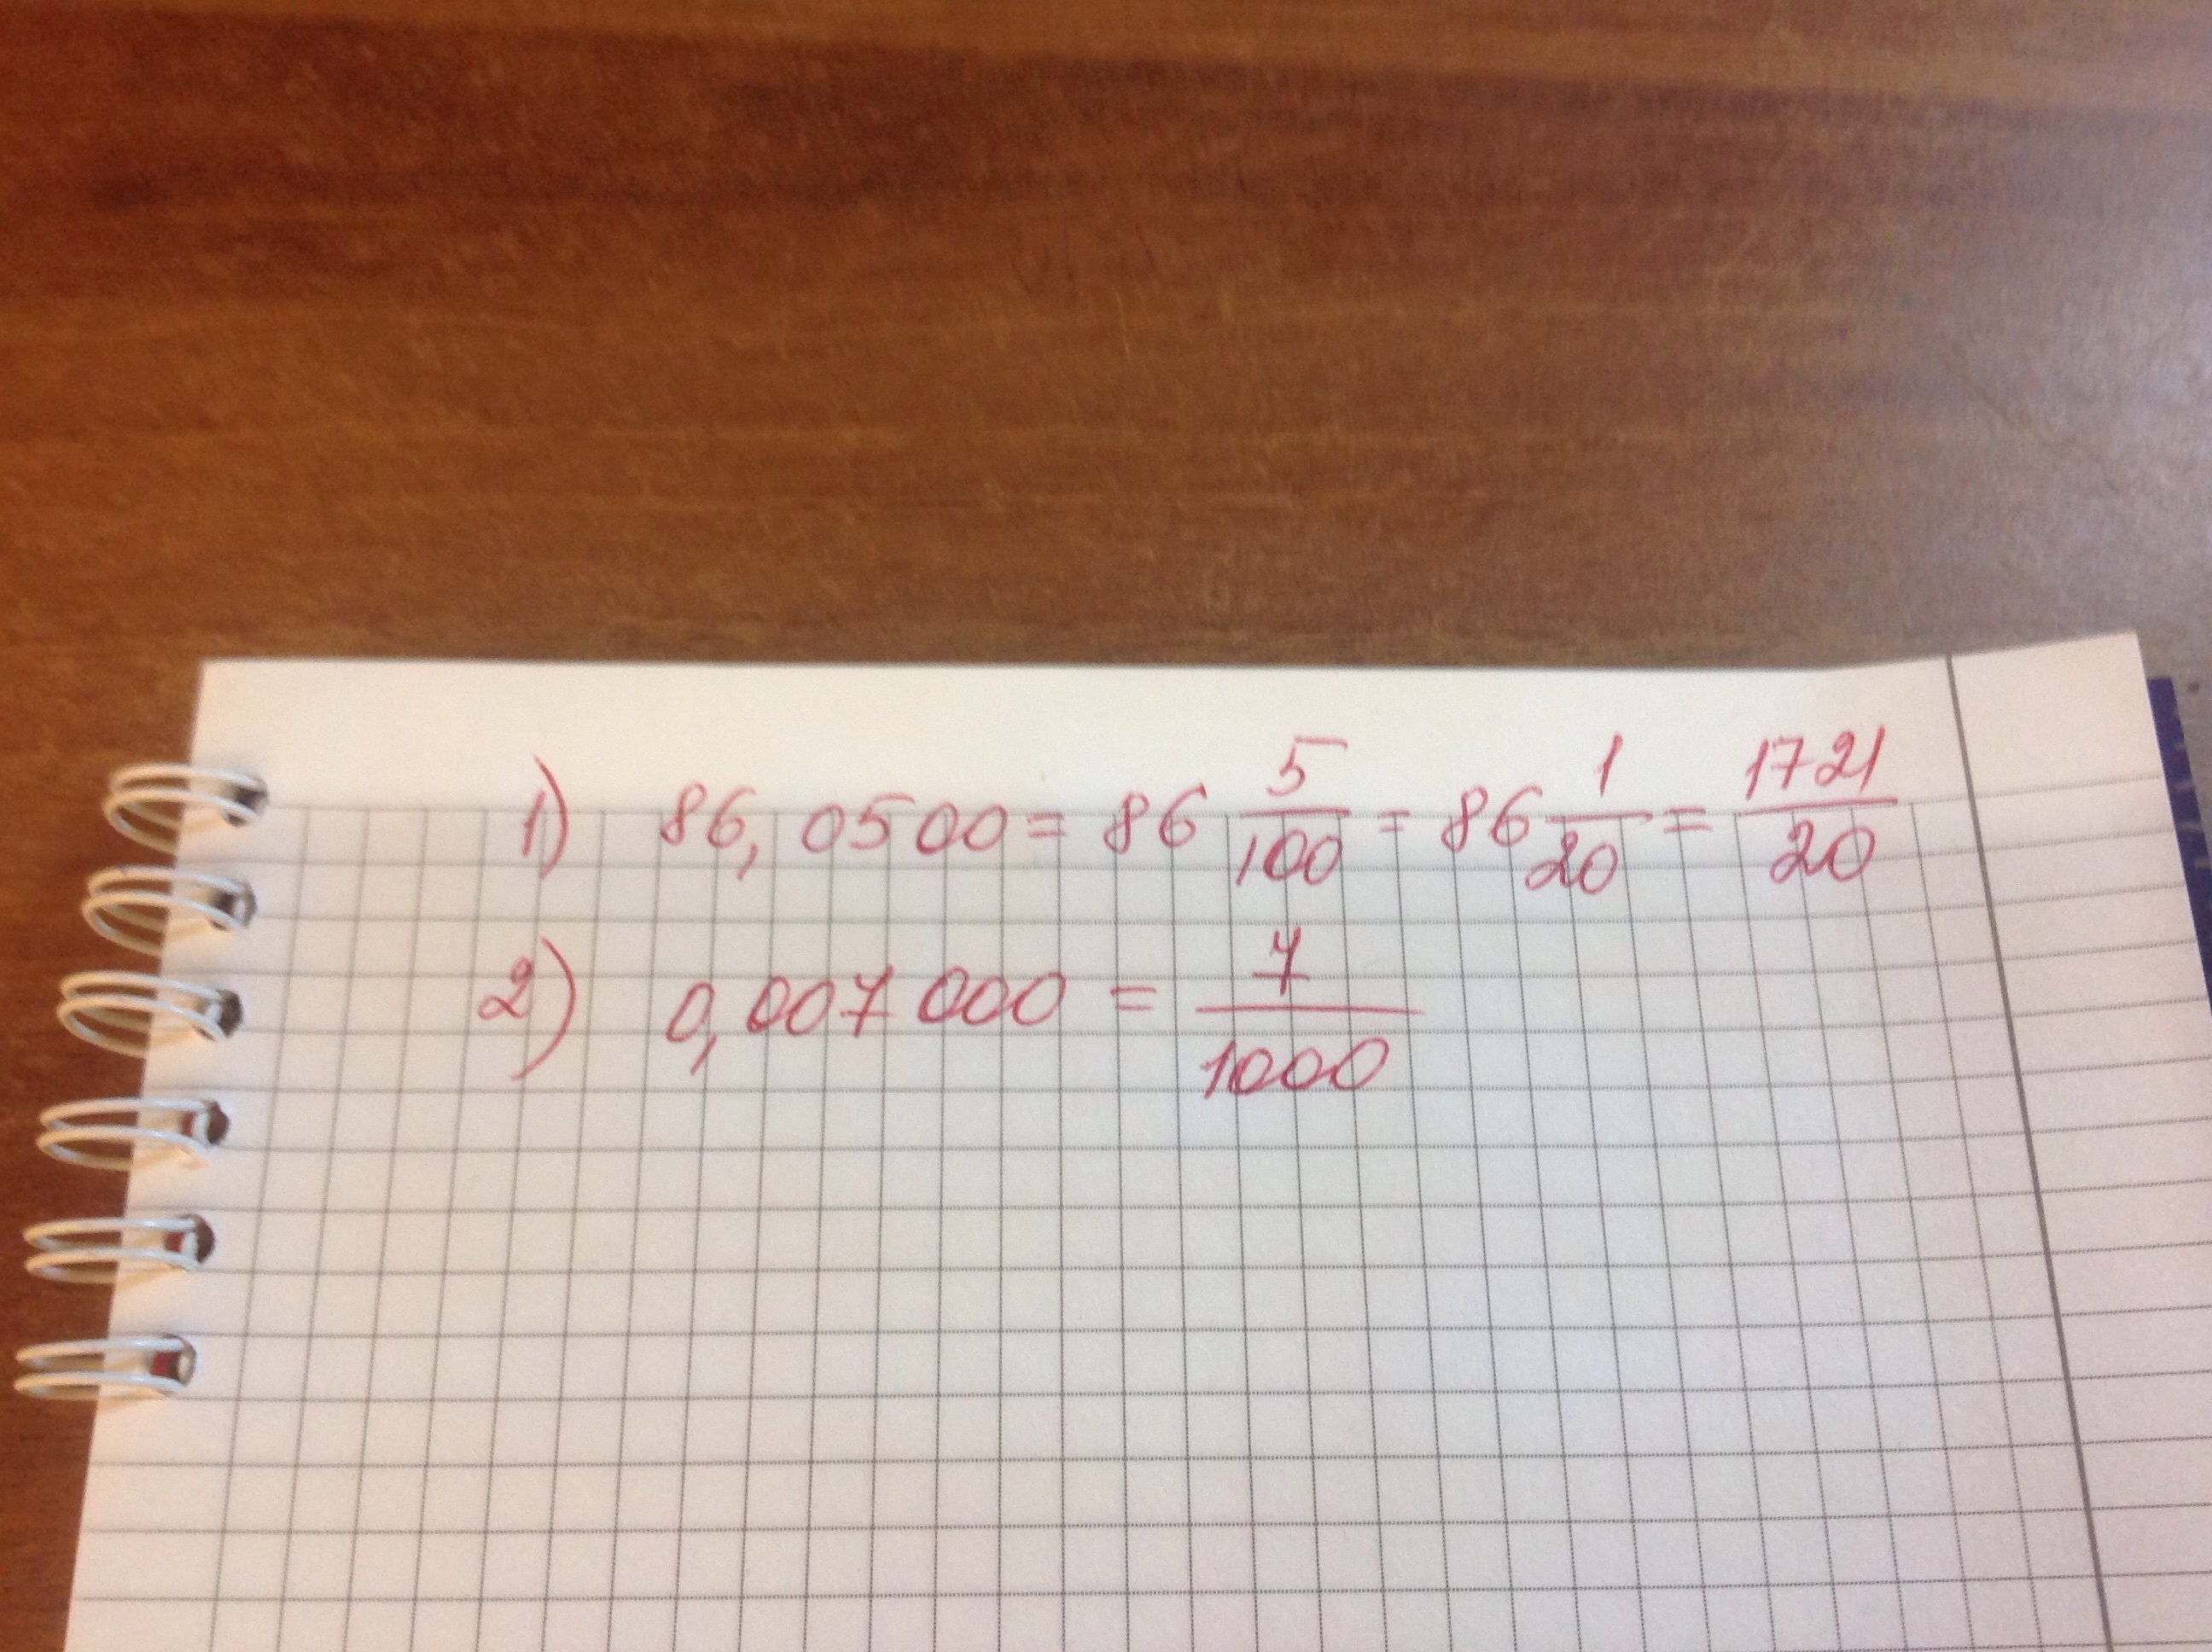 1) 86,0500 = 86 5/100 = 86 1/20 = 1721/20
2) 0,007000 = 7/1000